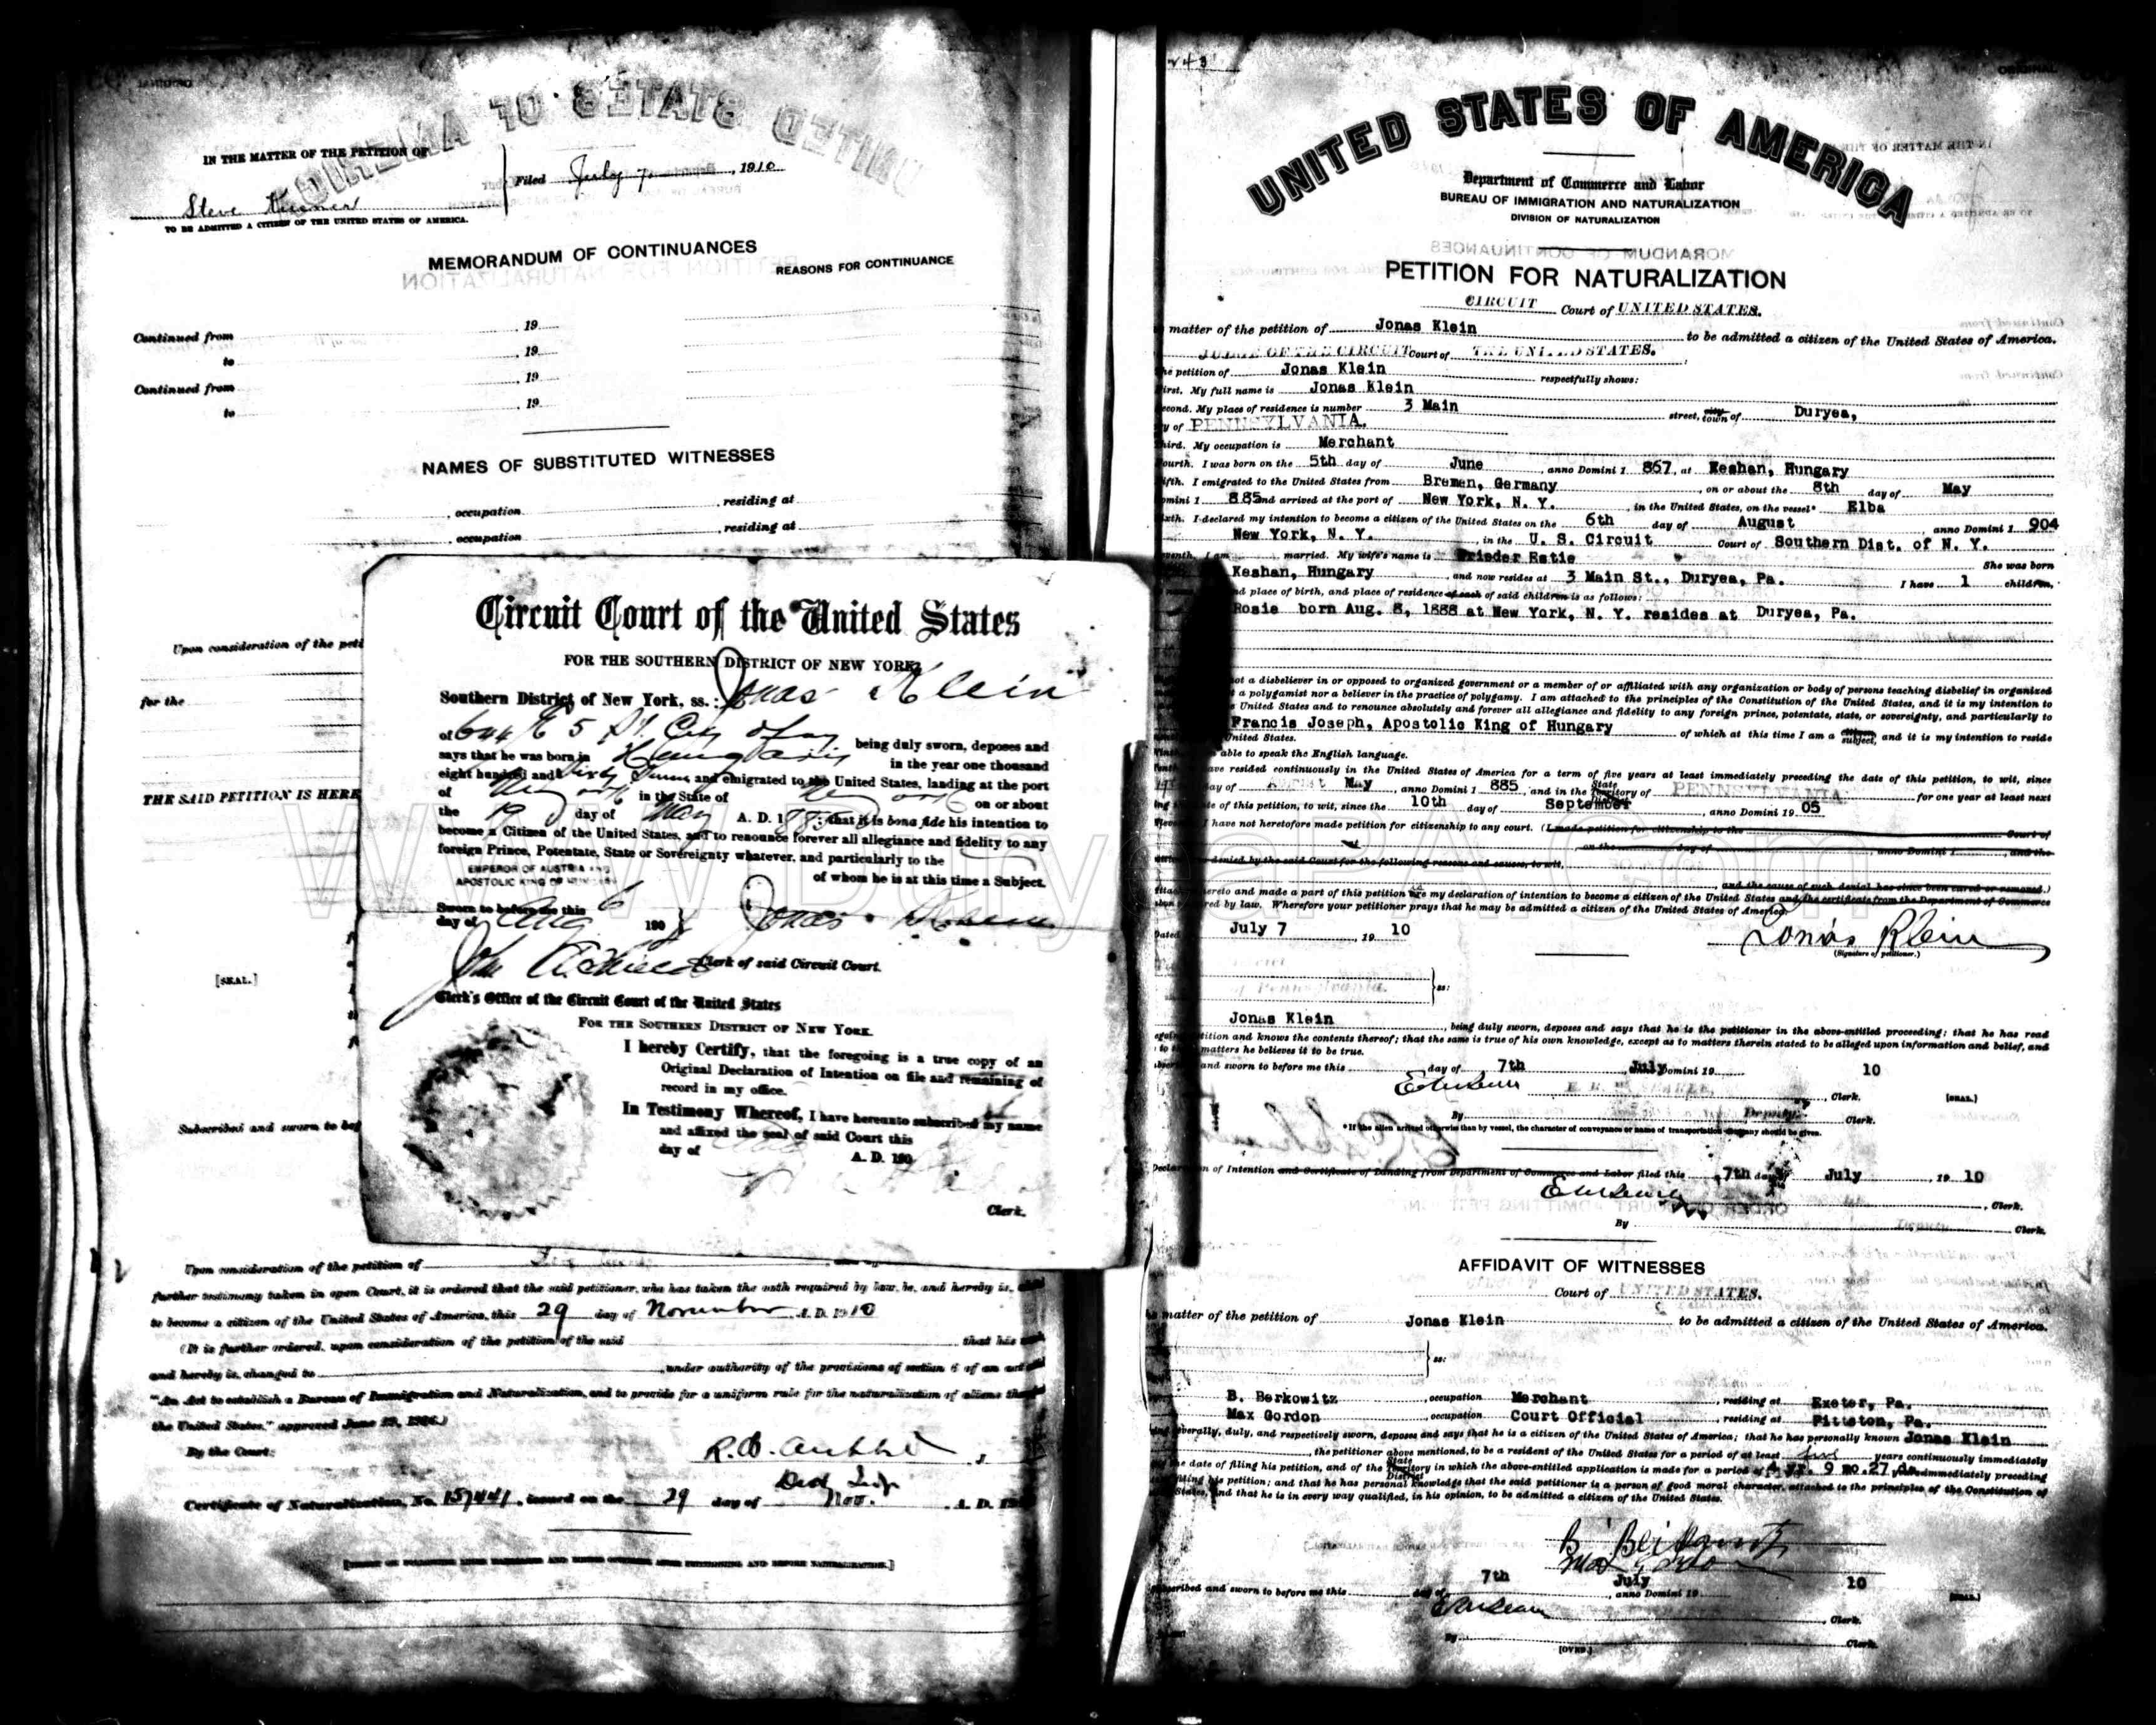 IN THE MATTER OF THE PETITION OF
Steve
Filed July 7, 1910
TO BE ADMITTED A CITIZEN OF THE UNITED STATES OF AMERICA.
MEMORANDUM OF CONTINUANCES
REASONS FOR CONTINUANCE
Continued from , 19
to , 19
Continued from , 19
to , 19
NAMES OF SUBSTITUTED WITNESSES
, occupation , residing at
, occupation , residing at
Upon consideration of the peti
for the
THE SAID PETITION IS HERE
[SEAL.]
Subscribed and sworn to bef
Circuit Court of the United States
FOR THE SOUTHERN DISTRICT OF NEW YORK.
Southern District of New York, ss.: Jonas Klein
of 644 E 5 St. City of being duly sworn, deposes and
says that he was born in in the year one thousand
eight hundred and Sixty and emigrated to the United States, landing at the port
of New York in the State of New York on or about
the 19 day of May A. D. 1885; that it is bona fide his intention to
become a Citizen of the United States, and to renounce forever all allegiance and fidelity to any
foreign Prince, Potentate, State or Sovereignty whatever, and particularly to the
EMPEROR OF AUSTRIA AND
APOSTOLIC KING OF HUNGARY of whom he is at this time a Subject.
Sworn to before me this 6
day of Aug 190 Jonas Klein
John Clerk of said Circuit Court.
Clerk's Office of the Circuit Court of the United States
FOR THE SOUTHERN DISTRICT OF NEW YORK.
I hereby Certify, that the foregoing is a true copy of an
Original Declaration of Intention on file and remaining of
record in my office.
In Testimony Whereof, I have hereunto subscribed my name
and affixed the seal of said Court this
day of A. D. 190
Clerk.
Upon consideration of the petition of
further testimony taken in open Court, it is ordered that the said petitioner, who has taken the oath required by law, be, and hereby is,
to become a citizen of the United States of America, this 29 day of November, A. D. 1910
(It is further ordered, upon consideration of the petition of the said that his
and hereby is, changed to , under authority of the provisions of section 6 of an act
"An Act to establish a Bureau of Immigration and Naturalization, and to provide for a uniform rule for the naturalization of aliens
the United States," approved June 29, 1906.)
By the Court:
Certificate of Naturalization, No. 157441, issued on the 29 day of Nov. A. D.
UNITED STATES OF AMERICA
Department of Commerce and Labor
BUREAU OF IMMIGRATION AND NATURALIZATION
DIVISION OF NATURALIZATION
PETITION FOR NATURALIZATION
CIRCUIT Court of UNITED STATES.
matter of the petition of Jonas Klein to be admitted a citizen of the United States of America.
JUDGE OF THE CIRCUIT Court of THE UNITED STATES.
he petition of Jonas Klein respectfully shows:
irst. My full name is Jonas Klein
econd. My place of residence is number 3 Main street, city town of Duryea,
y of PENNSYLVANIA.
hird. My occupation is Merchant
ourth. I was born on the 5th day of June, anno Domini 1 867, at Keshan, Hungary
ifth. I emigrated to the United States from Bremen, Germany, on or about the 8th day of May
omini 1 885 and arrived at the port of New York, N. Y. in the United States, on the vessel* Elba
ixth. I declared my intention to become a citizen of the United States on the 6th day of August, anno Domini 1 904
New York, N. Y., in the U. S. Circuit Court of Southern Dist. of N. Y.
eventh. I am married. My wife's name is Frieder Ratie She was born
Keshan, Hungary and now resides at 3 Main St., Duryea, Pa. I have 1 children,
nd place of birth, and place of residence of each of said children is as follows:
Rosie born Aug. 8, 1888 at New York, N. Y. resides at Duryea, Pa.
ot a disbeliever in or opposed to organized government or a member of or affiliated with any organization or body of persons teaching disbelief in organized
a polygamist nor a believer in the practice of polygamy. I am attached to the principles of the Constitution of the United States, and it is my intention to
United States and to renounce absolutely and forever all allegiance and fidelity to any foreign prince, potentate, state, or sovereignty, and particularly to
Francis Joseph, Apostolic King of Hungary of which at this time I am a citizen subject, and it is my intention to reside
United States.
able to speak the English language.
ave resided continuously in the United States of America for a term of five years at least immediately preceding the date of this petition, to wit, since
day of May anno Domini 1 885 and in the State Territory of PENNSYLVANIA for one year at least next
te of this petition, to wit, since the 10th day of September, anno Domini 19 05
I have not heretofore made petition for citizenship to any court. (I made petition for citizenship to the Court of
on the day of , anno Domini 1 , and the
denied by the said Court for the following reasons and causes, to wit,
and the cause of such denial has since been cured or removed.)
hereto and made a part of this petition are my declaration of intention to become a citizen of the United States and the certificate from the Department of Commerce
red by law. Wherefore your petitioner prays that he may be admitted a citizen of the United States of America.
Dated July 7, 19 10
Jonas Klein
(Signature of petitioner.)
of Pennsylvania. ss:
Jonas Klein, being duly sworn, deposes and says that he is the petitioner in the above-entitled proceeding; that he has read
tition and knows the contents thereof; that the same is true of his own knowledge, except as to matters therein stated to be alleged upon information and belief, and
to matters he believes it to be true.
and sworn to before me this 7th day of July, anno Domini 19 10
Clerk. [SEAL.]
By Deputy Clerk.
*If the alien arrived otherwise than by vessel, the character of conveyance or name of transportation company should be given.
Declaration of Intention and Certificate of Landing from Department of Commerce and Labor filed this 7th day of July, 19 10
, Clerk.
By Deputy Clerk.
AFFIDAVIT OF WITNESSES
Court of UNITED STATES.
he matter of the petition of Jonas Klein to be admitted a citizen of the United States of America.
ss:
B. Berkowitz, occupation Merchant, residing at Exeter, Pa.
Max Gordon, occupation Court Official, residing at Pittston, Pa.
everally, duly, and respectively sworn, deposes and says that he is a citizen of the United States of America; that he has personally known Jonas Klein
, the petitioner above mentioned, to be a resident of the United States for a period of at least five years continuously immediately
the date of filing his petition, and of the State Territory District in which the above-entitled application is made for a period of 4 yr. 9 mo. 27 da. years immediately preceding
filing his petition; and that he has personal knowledge that the said petitioner is a person of good moral character, attached to the principles of the Constitution of
States, and that he is in every way qualified, in his opinion, to be admitted a citizen of the United States.
B Berkowitz
Max Gordon
scribed and sworn to before me this 7th day of July, anno Domini 19 10 [SEAL.]
, Clerk.
By , Clerk.
[OVER.]
www.DuryeaPA.com